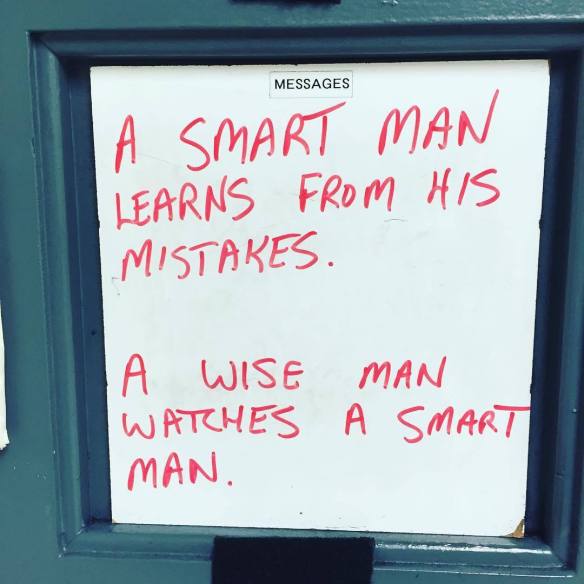 MESSAGES
A SMART MAN
LEARNS FROM HIS
MISTAKES.
A WISE MAN
WATCHES A SMART
MAN.